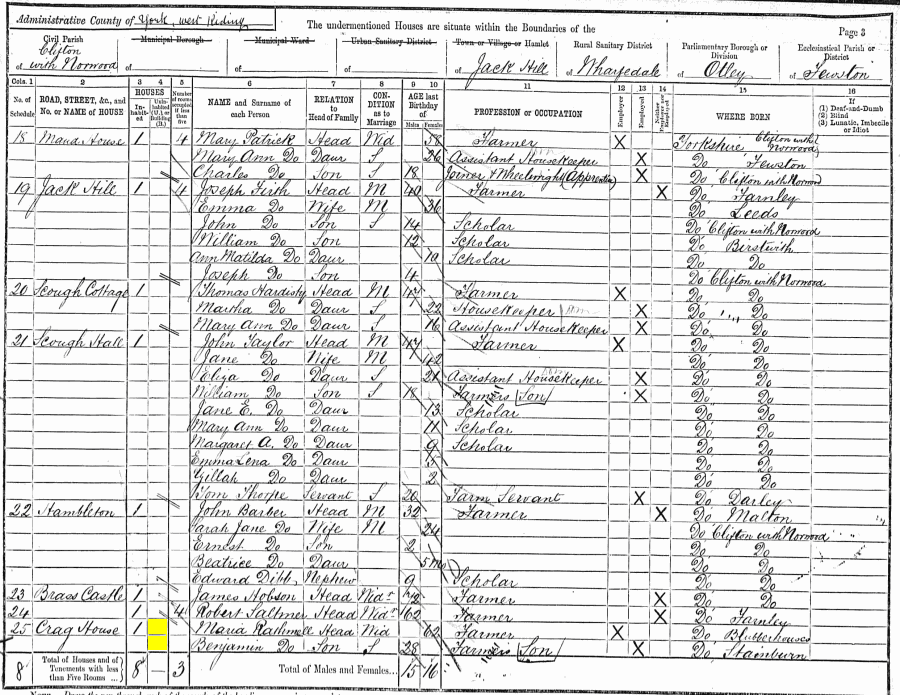 Administrative County of York, West Riding
The undermentioned Houses are situate within the Boundaries of the
Page 3
Civil Parish
Municipal Borough
Municipal Ward
Urban Sanitary District
Town or Village or Hamlet
Rural Sanitary District
Parliamentary Borough or Division
Ecclesiastical Parish or District
of Clifton with Norwood
of
of
of
of Jack Hill
of Wharfedale
of Otley
of Fewston
Cols. 1 2 3 4 5 6 7 8 9 10 11 12 13 14 15 16
No. of Schedule
ROAD, STREET, &c., and No. or NAME of HOUSE
HOUSES
Inhabited
Uninhabited (U.) or Building (B.)
Number of rooms occupied if less than five
NAME and Surname of each Person
RELATION to Head of Family
CONDITION as to Marriage
AGE last Birthday of
Males Females
PROFESSION or OCCUPATION
Employer
Employed
Neither Employer nor Employed
WHERE BORN
If
(1) Deaf-and-Dumb
(2) Blind
(3) Lunatic, Imbecile or Idiot
18 Maud House 1 4 Mary Patrick Head Wid 58 Farmer X Yorkshire Clifton with Norwood
Mary Ann Do Daur S 26 Assistant Housekeeper X Do Fewston
Charles Do Son S 18 Joiner & Wheelwright (Apprentice) X Do Clifton with Norwood
19 Jack Hill 1 4 Joseph Firth Head M 40 Farmer X Do Farnley
Emma Do Wife M 36 Do Leeds
John Do Son S 14 Scholar Do Clifton with Norwood
William Do Son 12 Scholar Do Birstwith
Ann Matilda Do Daur 10 Scholar Do Do
Joseph Do Son 4 Do Clifton with Norwood
20 Scough Cottage 1 Thomas Hardisty Head M 47 Farmer X Do Do
Martha Do Daur S 22 Housekeeper X Do Do
Mary Ann Do Daur S 16 Assistant Housekeeper X Do Do
21 Scough Hall 1 John Taylor Head M 47 Farmer X Do Do
Jane Do Wife M 42 Do Do
Eliza Do Daur S 21 Assistant Housekeeper X Do Do
William Do Son S 18 Farmers Son X Do Do
Jane E. Do Daur 13 Scholar Do Do
Mary Ann Do Daur 11 Scholar Do Do
Margaret A. Do Daur 9 Scholar Do Do
Emma Lena Do Daur 5 Do Do
Gillah Do Daur 2 Do Do
Tom Thorpe Servant S 20 Farm Servant X Do Darley
22 Hambleton 1 John Barber Head M 32 Farmer X Do Malton
Sarah Jane Do Wife M 24 Do Clifton with Norwood
Ernest Do Son 2 Do Do
Beatrice Do Daur 5 mo Do Do
Edward Dibb Nephew 9 Scholar Do Do
23 Brass Castle 1 James Hobson Head Widr 72 Farmer X Do Do
24 1 4 Robert Saltmer Head Widr 62 Farmer X Do Farnley
25 Crag House 1 Maria Rathmell Head Wid 62 Farmer X Do Blubberhouses
Benjamin Do Son S 28 Farmers Son X Do Stainburn
8 Total of Houses and of Tenements with less than Five Rooms ... 8 — 3 Total of Males and Females... 15 16